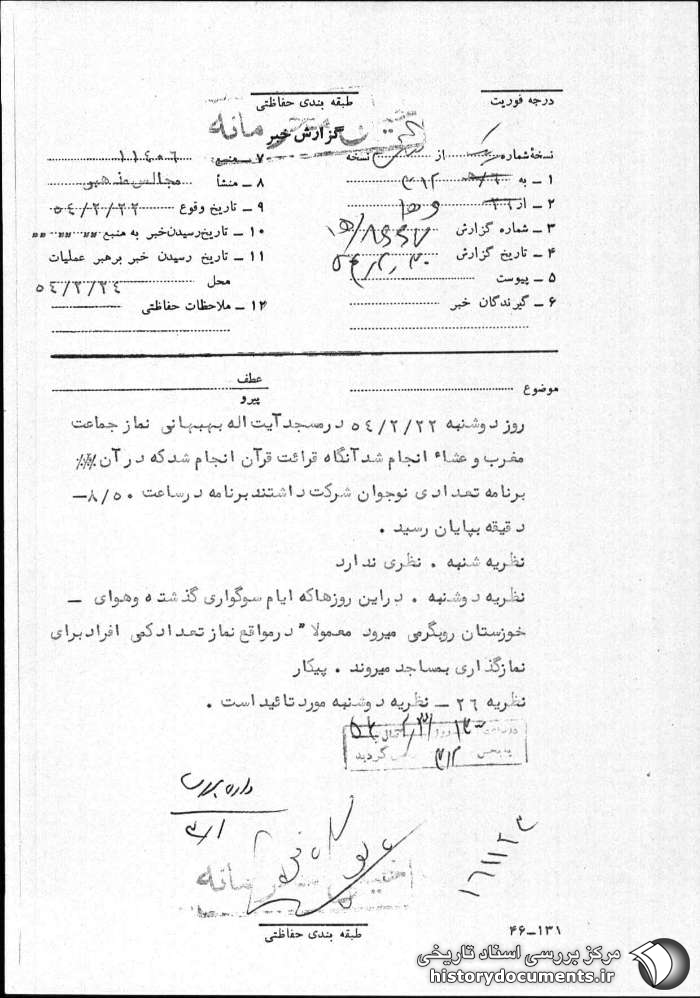 درجه فوریت
طبقه بندی حفاظتی
گزارش خبر
نسخهٔ شماره یک از نسخه
۱ ـ به ۳۱۲
۲ ـ از
۳ ـ شماره گزارش
۴ ـ تاریخ گزارش
۵ ـ پیوست
۶ ـ گیرندگان خبر
۷ ـ منبع: ۱۱۴۰۶
۸ ـ منشأ مجالس مذهبی
۹ ـ تاریخ وقوع ۵۴/۲/۲۲
۱۰ ـ تاریخ رسیدن خبر به منبع " " "
۱۱ ـ تاریخ رسیدن خبر برهبر عملیات
محل ۵۴/۲/۲۴
۱۲ ـ ملاحظات حفاظتی
موضوع
عطف
پیرو
روز دوشنبه ۵۴/۲/۲۲ در مسجد آیت اله بهبهانی نماز جماعت
مغرب و عشاء انجام شد آنگاه قرائت قرآن انجام شد که در آن
برنامه تعدادی نوجوان شرکت داشتند برنامه در ساعت ۸/۵۰ ـ
دقیقه بپایان رسید .
نظریه شنبه . نظری ندارد
نظریه دوشنبه . در این روزها که ایام سوگواری گذشته و هوای ـ
خوزستان رو بگرمی میرود معمولا" در مواقع نماز تعداد کمی افراد برای
نمازگذاری بمساجد میروند . پیکار
نظریه ۲۶ ـ نظریه دوشنبه مورد تائید است .
۳۱۲ گردید
۱۶۱۱۲۳
طبقه بندی حفاظتی
۴۶ـ۱۳۱
مرکز بررسی اسناد تاریخی
historydocuments.ir